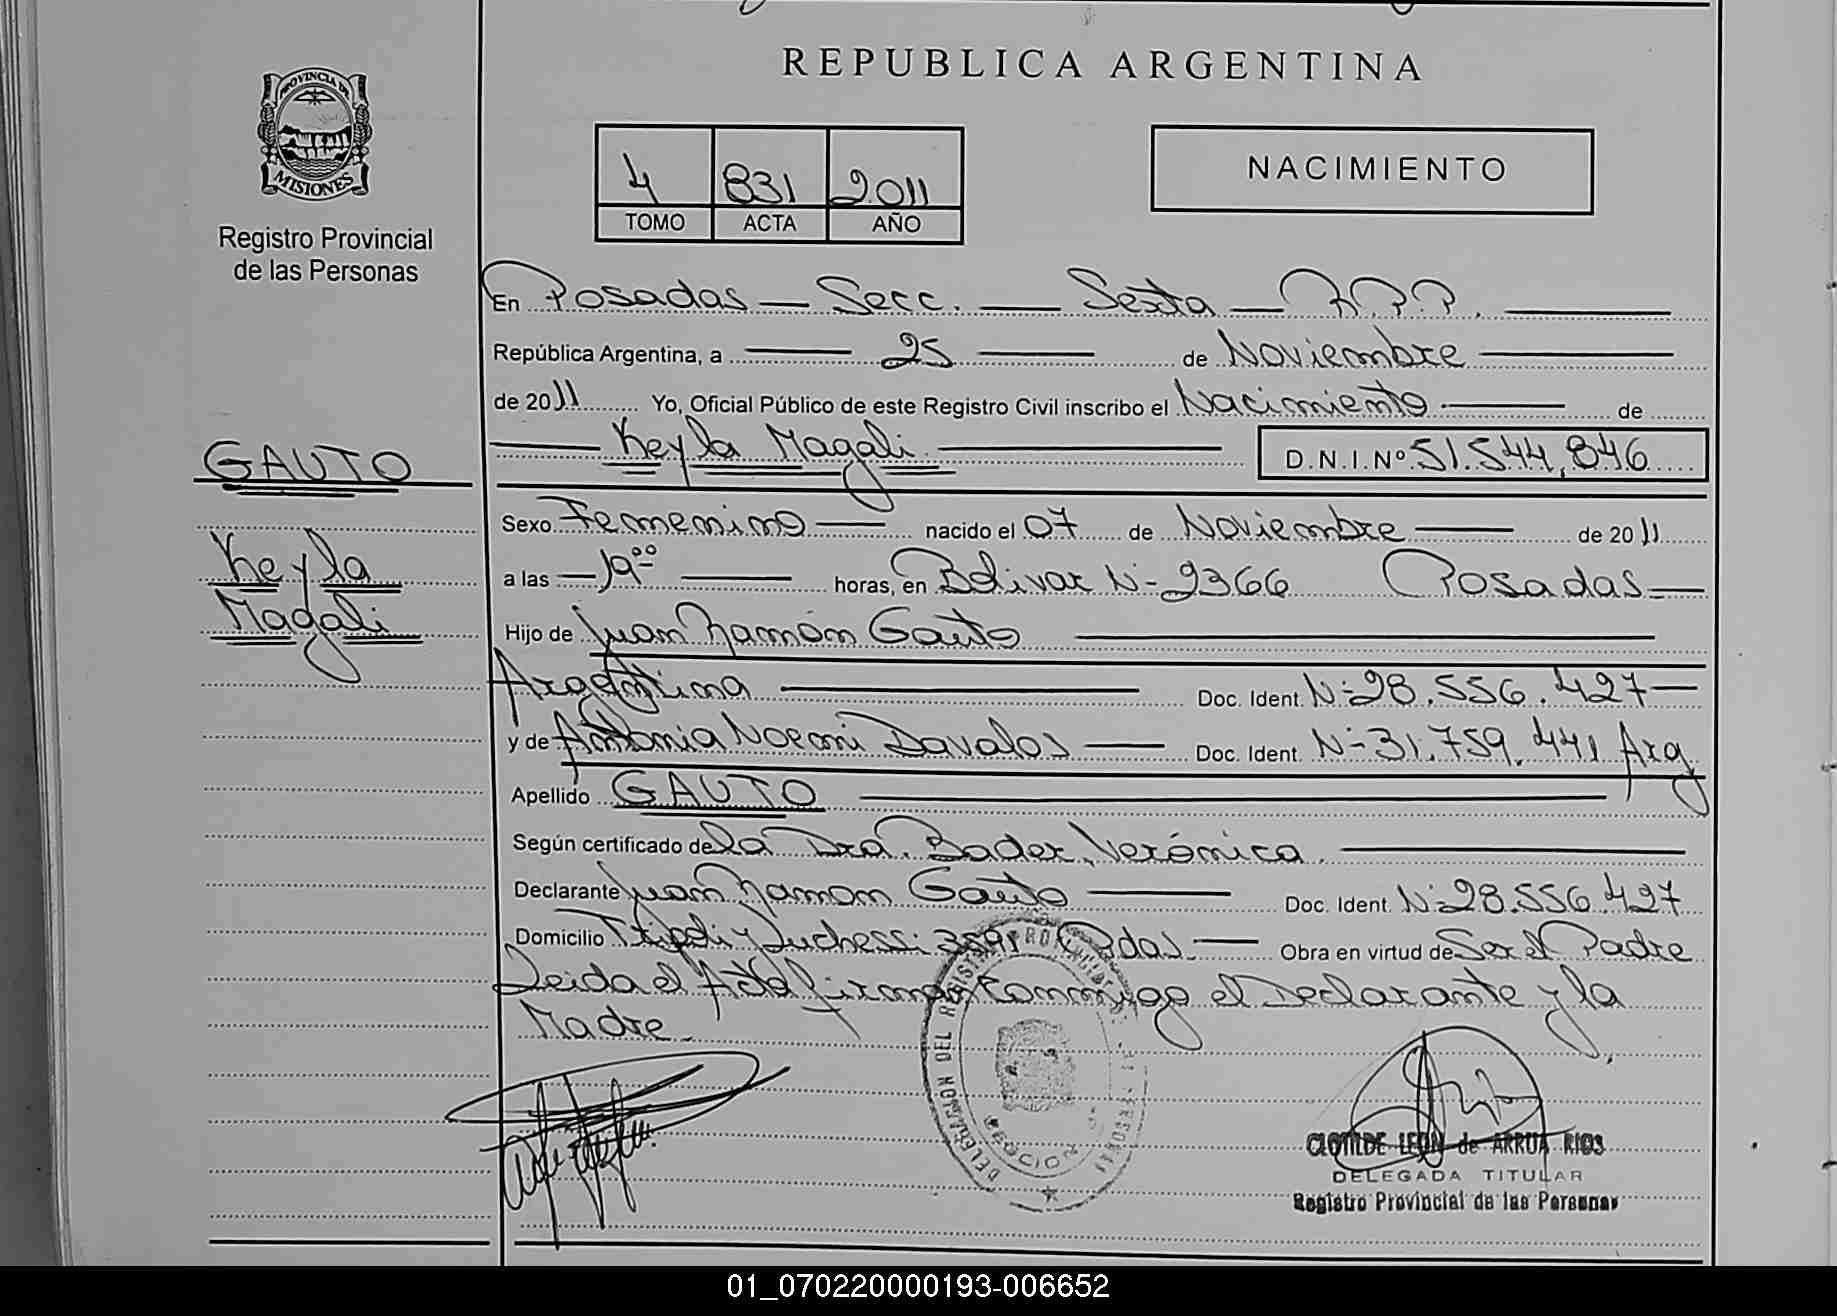 REPUBLICA ARGENTINA
PROVINCIA DE
MISIONES
Registro Provincial
de las Personas
4 831 2011
TOMO ACTA AÑO
NACIMIENTO
En Posadas — Secc. — Sexta — R.P.P.
República Argentina, a 25 de Noviembre
de 2011 Yo, Oficial Público de este Registro Civil inscribo el Nacimiento de
Keyla Magali D.N.I.Nº 51.544.846
GAUTO
Keyla
Magali
Sexo Femenino nacido el 07 de Noviembre de 2011
a las 19⁰⁰ horas, en Bolivar Nº 2366 Posadas
Hijo de Juan Ramón Gauto
Argentina Doc. Ident. Nº 28.556.427
y de Antonia Noemi Davalos Doc. Ident. Nº 31.759.441 Arg
Apellido GAUTO
Según certificado de la Dra. Bader, Verónica.
Declarante Juan Ramon Gauto Doc. Ident. Nº 28.556.427
Domicilio y Pdas. Obra en virtud de Ser el Padre
Leida el Acta firman conmigo el Declarante y la
Madre.
DELEGACION DEL REGISTRO PROVINCIAL DE
SECCION
CLOTILDE LEON de ARRUA RIOS
DELEGADA TITULAR
Registro Provincial de las Personas
01_070220000193-006652